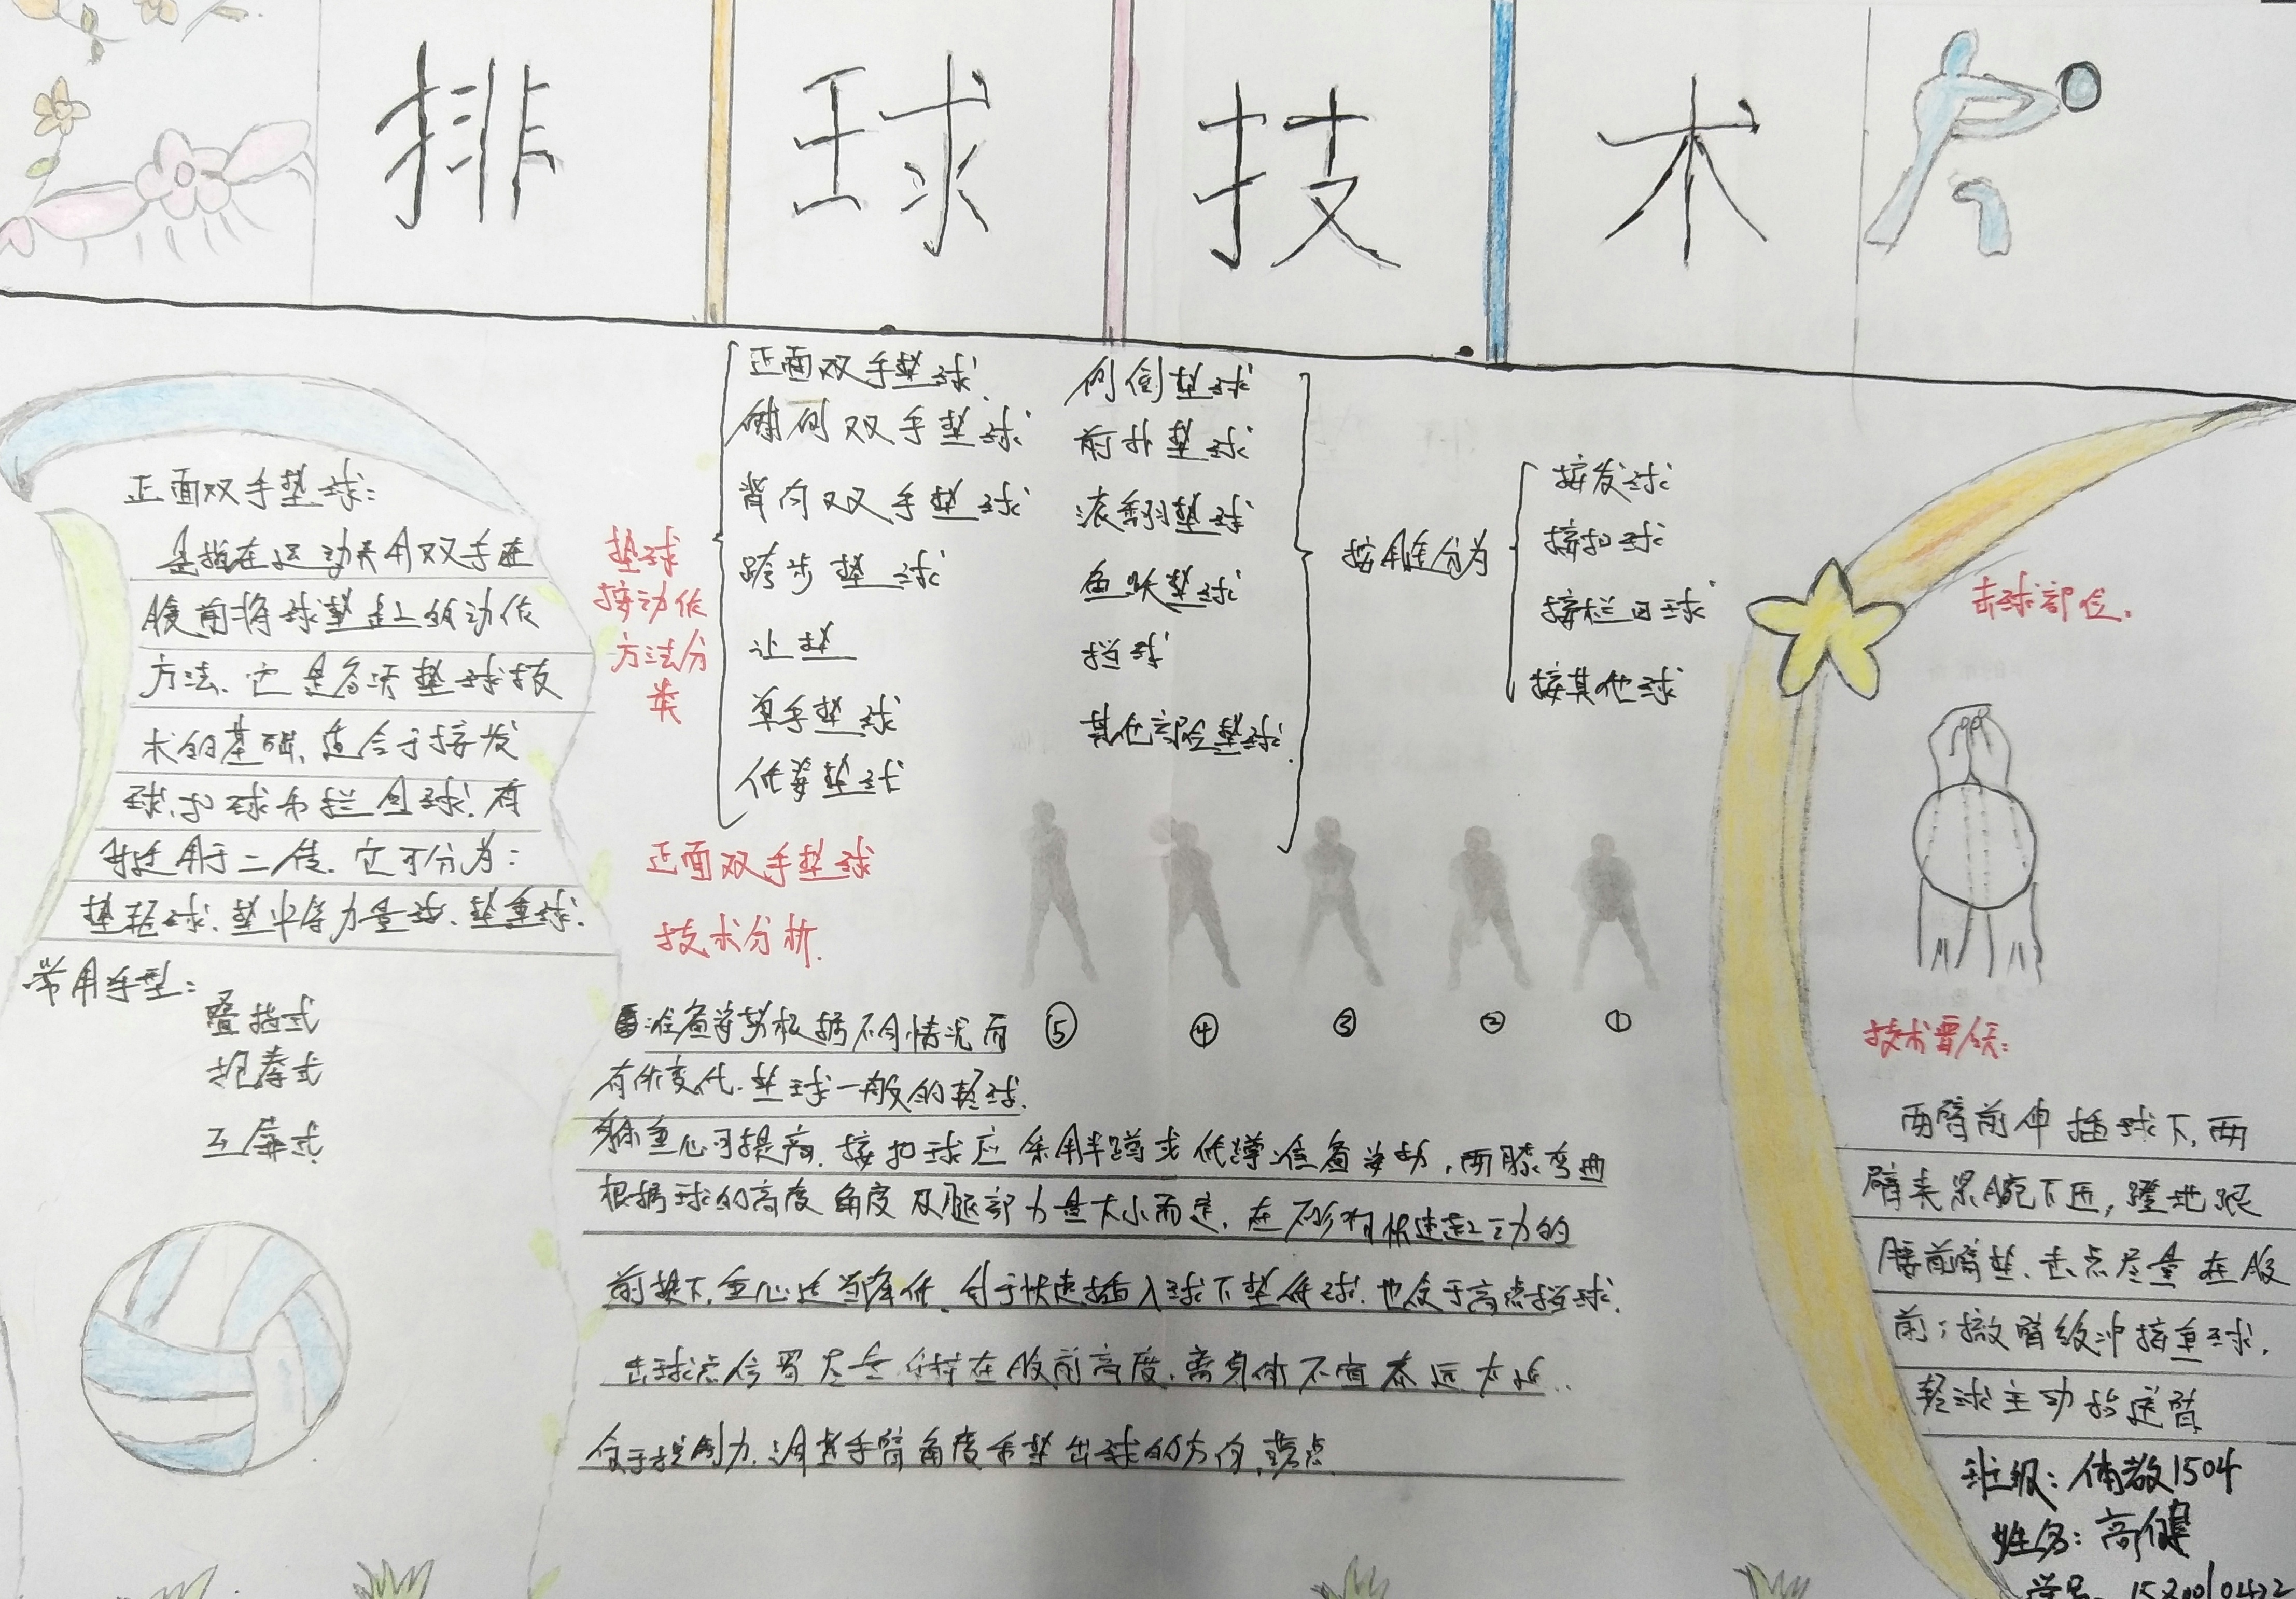 排球技术
正面双手垫球:
是指在运动员用双手在
腹前将球垫起的动作
方法、它是各项垫球技
术的基础,适合于接发
球、扣球和拦回球.有
时还用于二传.它可分为:
垫轻球、垫中等力量球、垫重球.
常用手型:
叠指式
抱拳式
互靠式
垫球
按动作
方法分
类
正面双手垫球.
体侧双手垫球
背向双手垫球
跨步垫球
让垫
单手垫球
低姿垫球
侧倒垫球
前扑垫球
滚翻垫球
鱼跃垫球
挡球
其他部位垫球.
按用途分为
接发球
接扣球
接拦回球
接其他球
正面双手垫球
技术分析.
⑤ ④ ③ ② ①
准备姿势根据不同情况而
有所变化.垫球一般的轻球.
身体重心可提高.接扣球应采用半蹲或低蹲准备姿势,两膝弯曲
根据球的高度角度及腿部力量大小而定.在不影响快速起动的
前提下,重心适当降低.利于快速插入球下垫低球.也便于高点挡球.
击球点位置尽量保持在腹前高度.离身体不宜太远太近..
便于控制力.调整手臂角度和垫出球的方向.落点
击球部位.
技术要领:
两臂前伸插球下,两
臂夹紧腕下压,蹬地跟
腰前臂垫.击点尽量在腹
前;撤臂缓冲接重球.
轻球主动抬送臂
班级:体教1504
姓名:高健